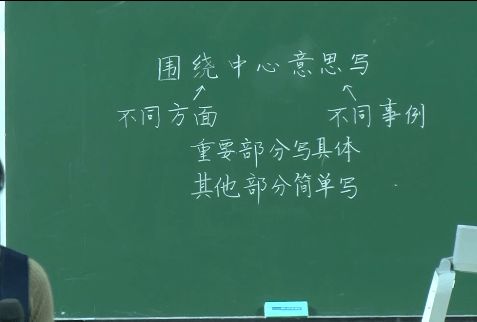 围绕中心意思写
不同方面 不同事例
重要部分写具体
其他部分简单写